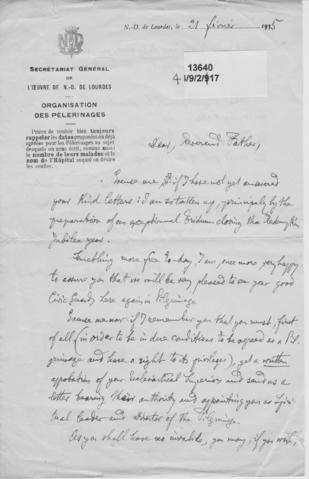 N.-D. de Lourdes, le 21 février 1935
SECRÉTARIAT GÉNÉRAL
DE
L'ŒUVRE DE N.-D. DE LOURDES
ORGANISATION
DES PÈLERINAGES
Prière de vouloir bien toujours
rappeler les dates proposées ou déjà
agréées pour les Pèlerinages au sujet
desquels on nous écrit, comme aussi
le nombre de leurs malades et le
nom de l'Hôpital auquel on désire
les confier.
13640
4/9/2/917
Dear, Reverend Father,
Excuse me if I have not yet answered
your kind letters: I am so taken up, principally by the
preparation of an exceptional Triduum closing the Redemption
Jubilee year.
Something more free to-day I am, once more very happy
to assure you that we will be very pleased to see your good
Civic Guards here again in Pilgrimage
Excuse me now if I remember you that you must, first
of all (in order to be in due conditions to be agreed as a Pil-
grimage and have a right to its privileges), get a written
approbation of your Ecclesiastical Superiors and send us a
letter bearing their authority and appointing you as Spiri-
tual Leader and Director of the Pilgrimage.
As you shall have no invalids, you may, if you wish,